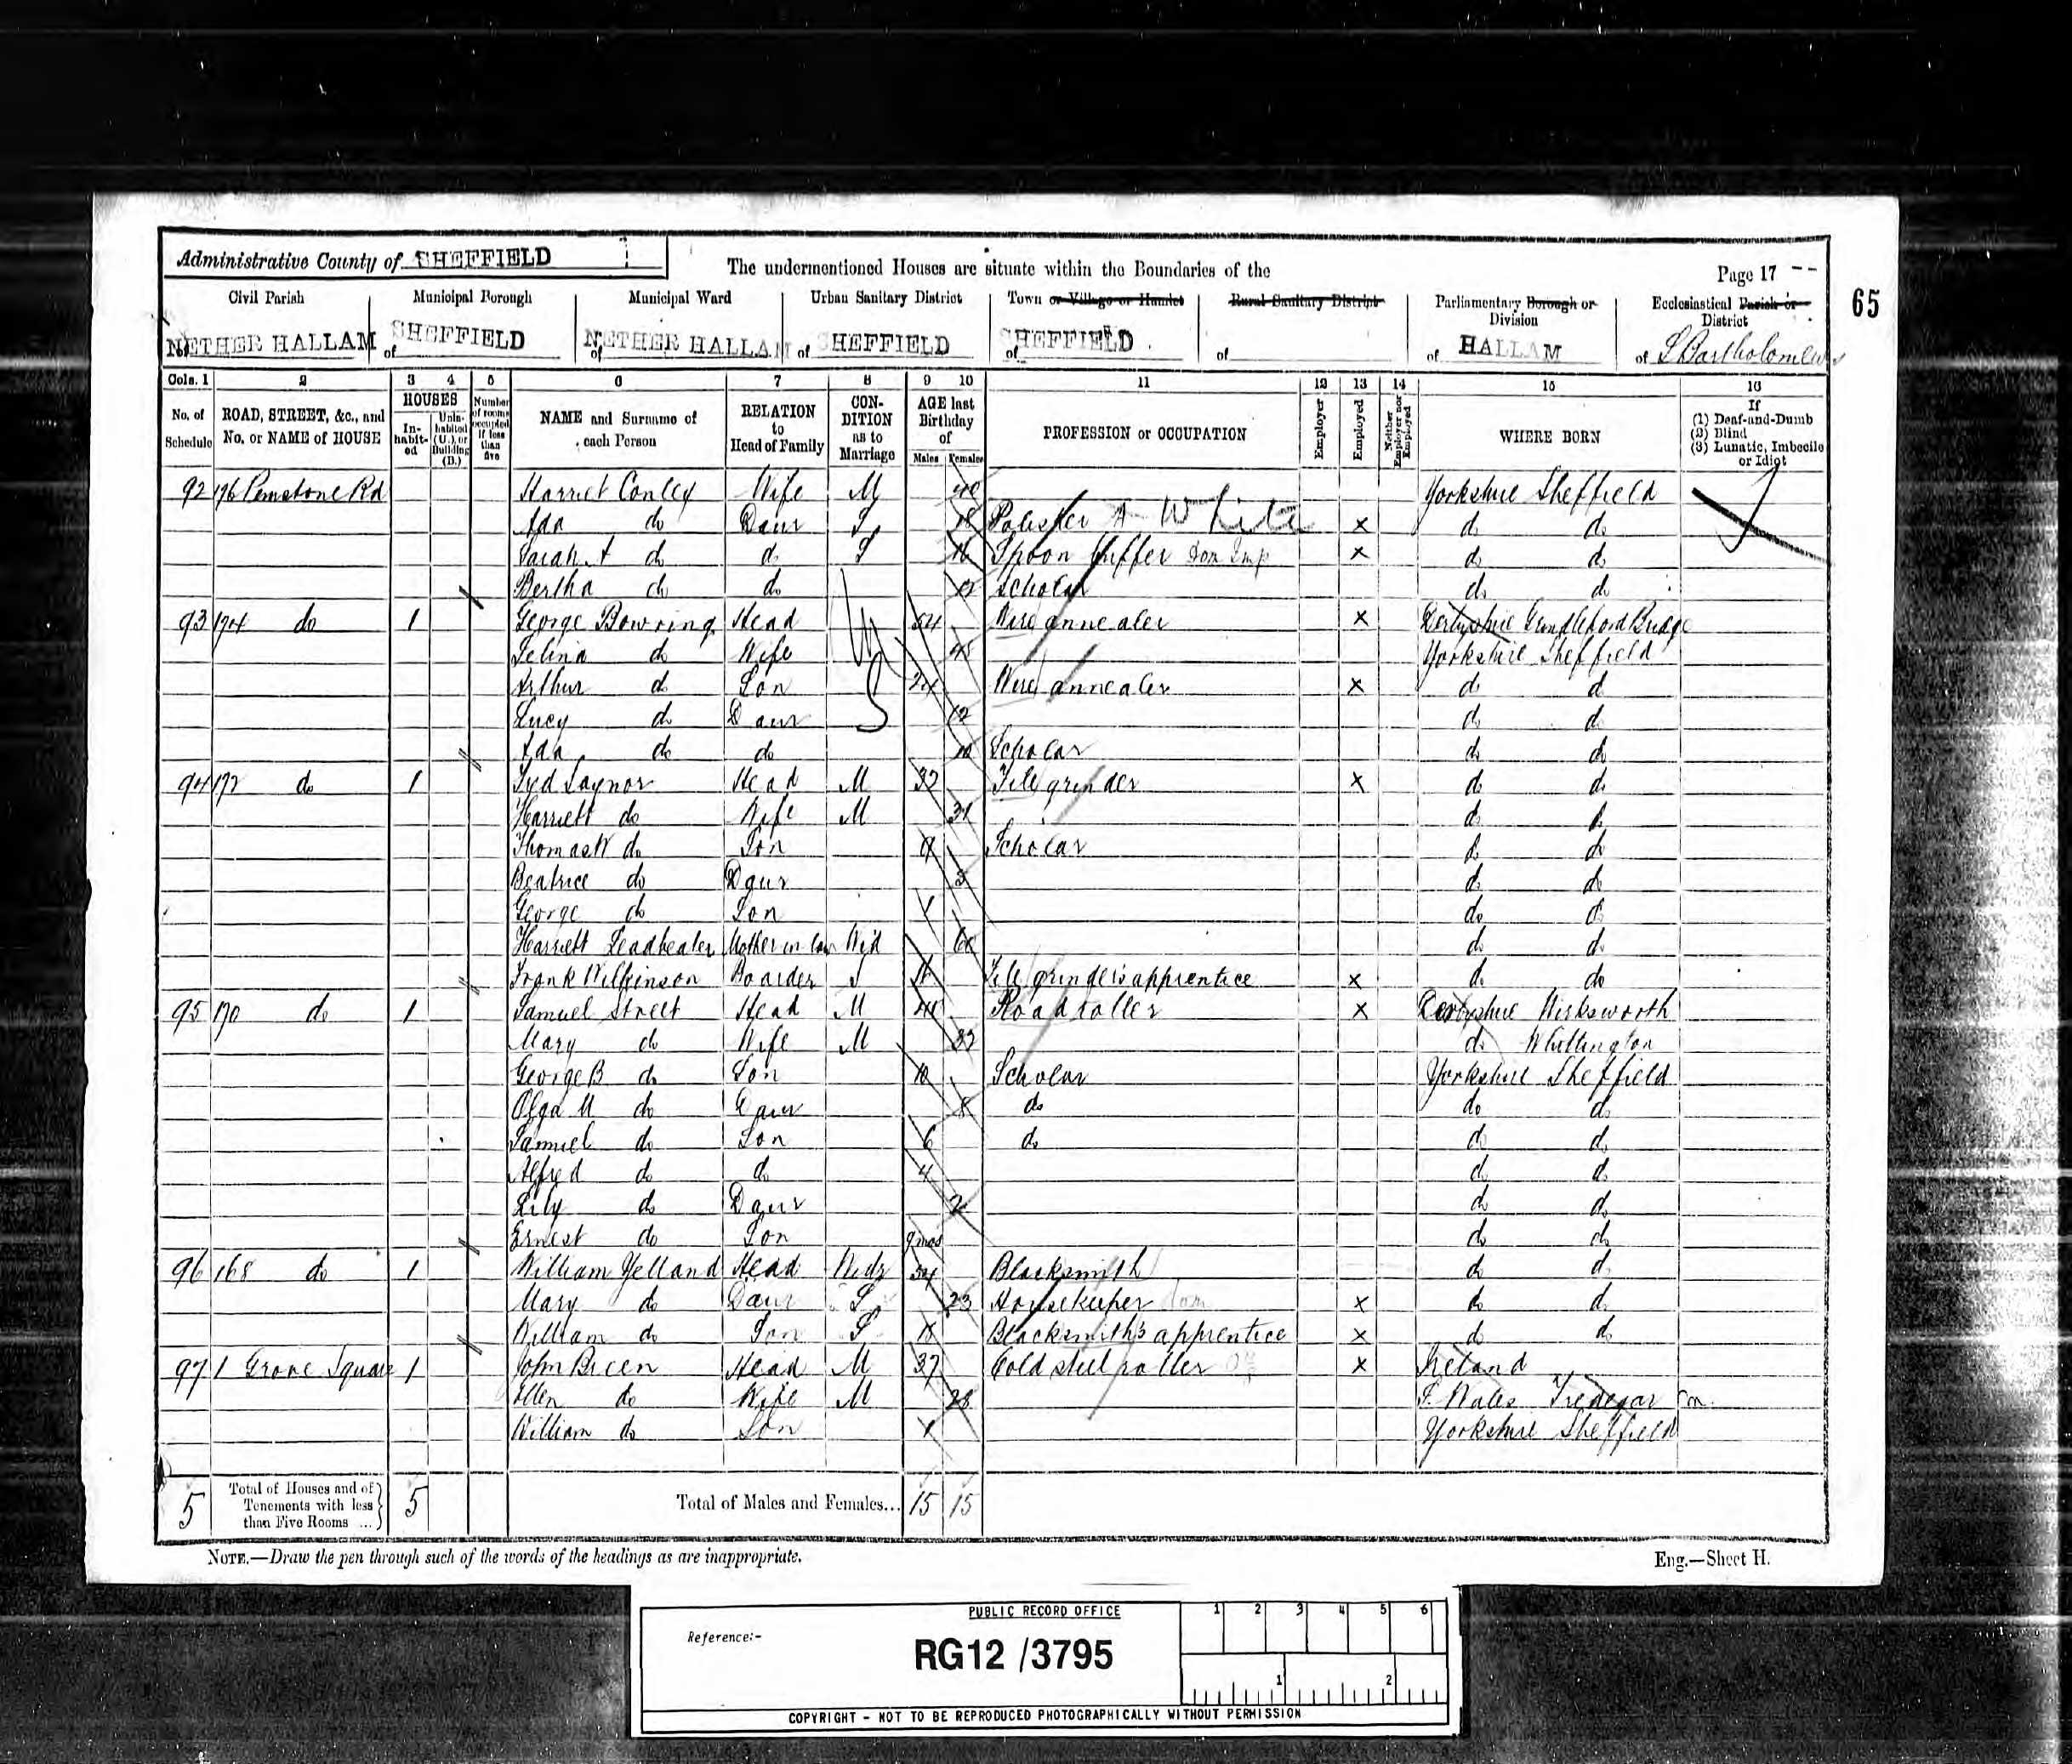 Administrative County of SHEFFIELD
The undermentioned Houses are situate within the Boundaries of the
Page 17
65
Civil Parish
Municipal Borough
Municipal Ward
Urban Sanitary District
Town or Village or Hamlet
Rural Sanitary District
Parliamentary Borough or Division
Ecclesiastical Parish or District
of NETHER HALLAM
of SHEFFIELD
of NETHER HALLAM
of SHEFFIELD
of SHEFFIELD
of
of HALLAM
of S Bartholomews
Cols. 1 2 3 4 5 6 7 8 9 10 11 12 13 14 15 16
No. of Schedule
ROAD, STREET, &c., and No. or NAME of HOUSE
HOUSES
In-habit-ed
Unin-habited (U.), or Building (B.)
Number of rooms occupied if less than five
NAME and Surname of each Person
RELATION to Head of Family
CON-DITION as to Marriage
AGE last Birthday of
Males Females
PROFESSION or OCCUPATION
Employer
Employed
Neither Employer nor Employed
WHERE BORN
If
(1) Deaf-and-Dumb
(2) Blind
(3) Lunatic, Imbecile or Idiot
92 176 Penistone Rd Harriet Conley Wife M Yorkshire Sheffield
Ada do Daur S 18 Polisher A White x do do
Sarah A do do S 16 Spoon buffer x do do
Bertha do do Scholar do do
93 174 do 1 George Bowring Head 54 Wire annealer x Derbyshire Grindleford Bridge
Selina do Wife 45 Yorkshire Sheffield
Arthur do Son 24 Wire annealer x do do
Lucy do Daur 12 do do
Ada do do 10 Scholar do do
94 172 do 1 Head M File grinder x do do
Harriett do Wife M 31 do do
Thomas W do Son 9 Scholar do do
Beatrice do Daur 5 do do
George do Son 1 do do
Harriett Leadbeater Mother in law Wid do do
Frank Wilkinson Boarder S 16 File grinder's apprentice x do do
95 170 do 1 Samuel Street Head M Road roller x Derbyshire Wirksworth
Mary do Wife M do Whittington
George B do Son 10 Scholar Yorkshire Sheffield
Olga M do Daur 8 do do do
Samuel do Son 6 do do do
Alfred do do 4 do do
Lily do Daur 2 do do
Ernest do Son 9 mos do do
96 168 do 1 William Yelland Head Widr 54 Blacksmith do do
Mary do Daur S 23 Housekeeper dom x do do
William do Son S Blacksmith's apprentice x do do
97 1 Grove Square 1 John Breen Head M 37 Cold steel roller x Ireland
Ellen do Wife M 28 S. Wales Tredegar
William do Son 1 Yorkshire Sheffield
5 Total of Houses and of Tenements with less than Five Rooms ... 5 Total of Males and Females... 15 15
NOTE.—Draw the pen through such of the words of the headings as are inappropriate.
Eng.—Sheet H.
PUBLIC RECORD OFFICE
1 2 3 4 5 6
Reference:-
RG12 /3795
1 2
COPYRIGHT - NOT TO BE REPRODUCED PHOTOGRAPHICALLY WITHOUT PERMISSION